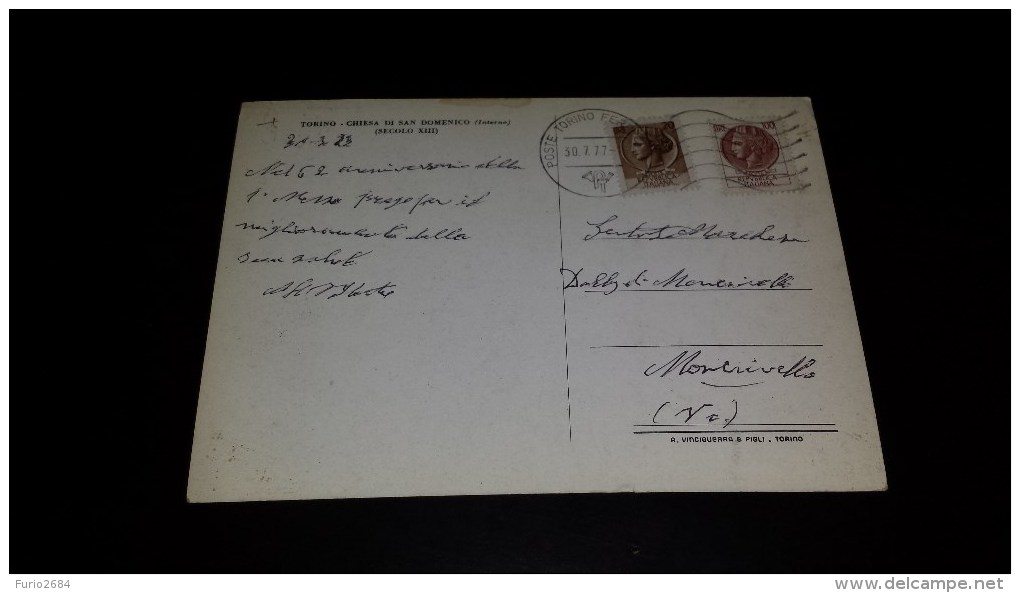 TORINO - CHIESA DI SAN DOMENICO (Interno)
(SECOLO XIII)
Nel 62 anniversario della
1ª Messa prego per il
miglioramento della
sua salute
POSTE TORINO FER
30.7.77
100
REPUBBLICA
ITALIANA
REPUBBLICA
ITALIANA
Marchesa
di Moncrivello
Moncrivello
(Vc)
A. VINCIGUERRA & FIGLI . TORINO
Furio2684
www.delcampe.net